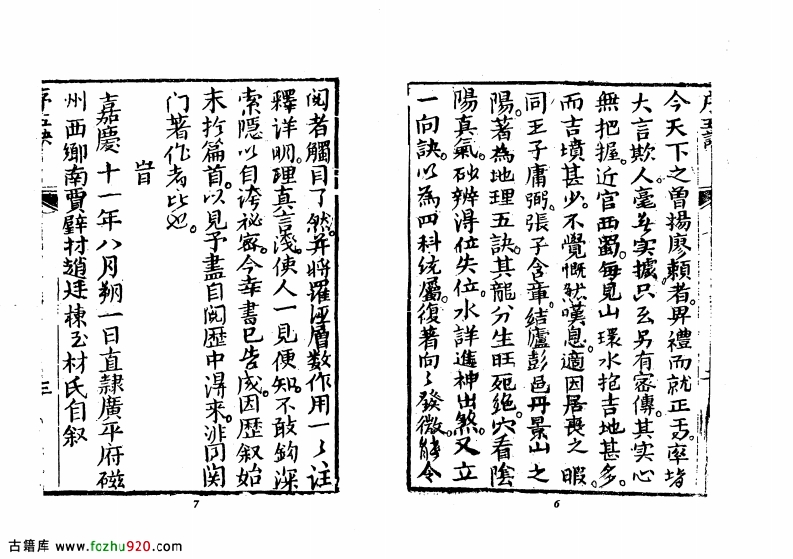 今天下之曾揚廖頼者畢禮而就正焉率皆
大言欺人毫無实據只云另有密傳其实心
無把握近官西蜀每見山環水抱吉地甚多
而吉墳甚少不覺慨然嘆息適因居喪之暇
同王子庸弼張子含章結廬彭邑丹景山之
陽著為地理五訣其龍分生旺死絶穴看陰
陽真氣砂辨得位失位水詳進神出煞又立
一向訣以為四科統屬復著向向發微能令
6
閱者觸目了然并將羅經層数作用一一註
釋详明理真言淺使人一見便知不敢鈎深
索隱以自誇秘密今幸書已告成因歷叙始
末于篇首以見予盡自閱歷中得来非同関
门著作者比也
旹
嘉慶十一年八月朔一日直隸廣平府磁
州西鄉南賈壁村趙廷棟玉材氏自叙
序五訣
三
7
古籍库 www.fozhu920.com